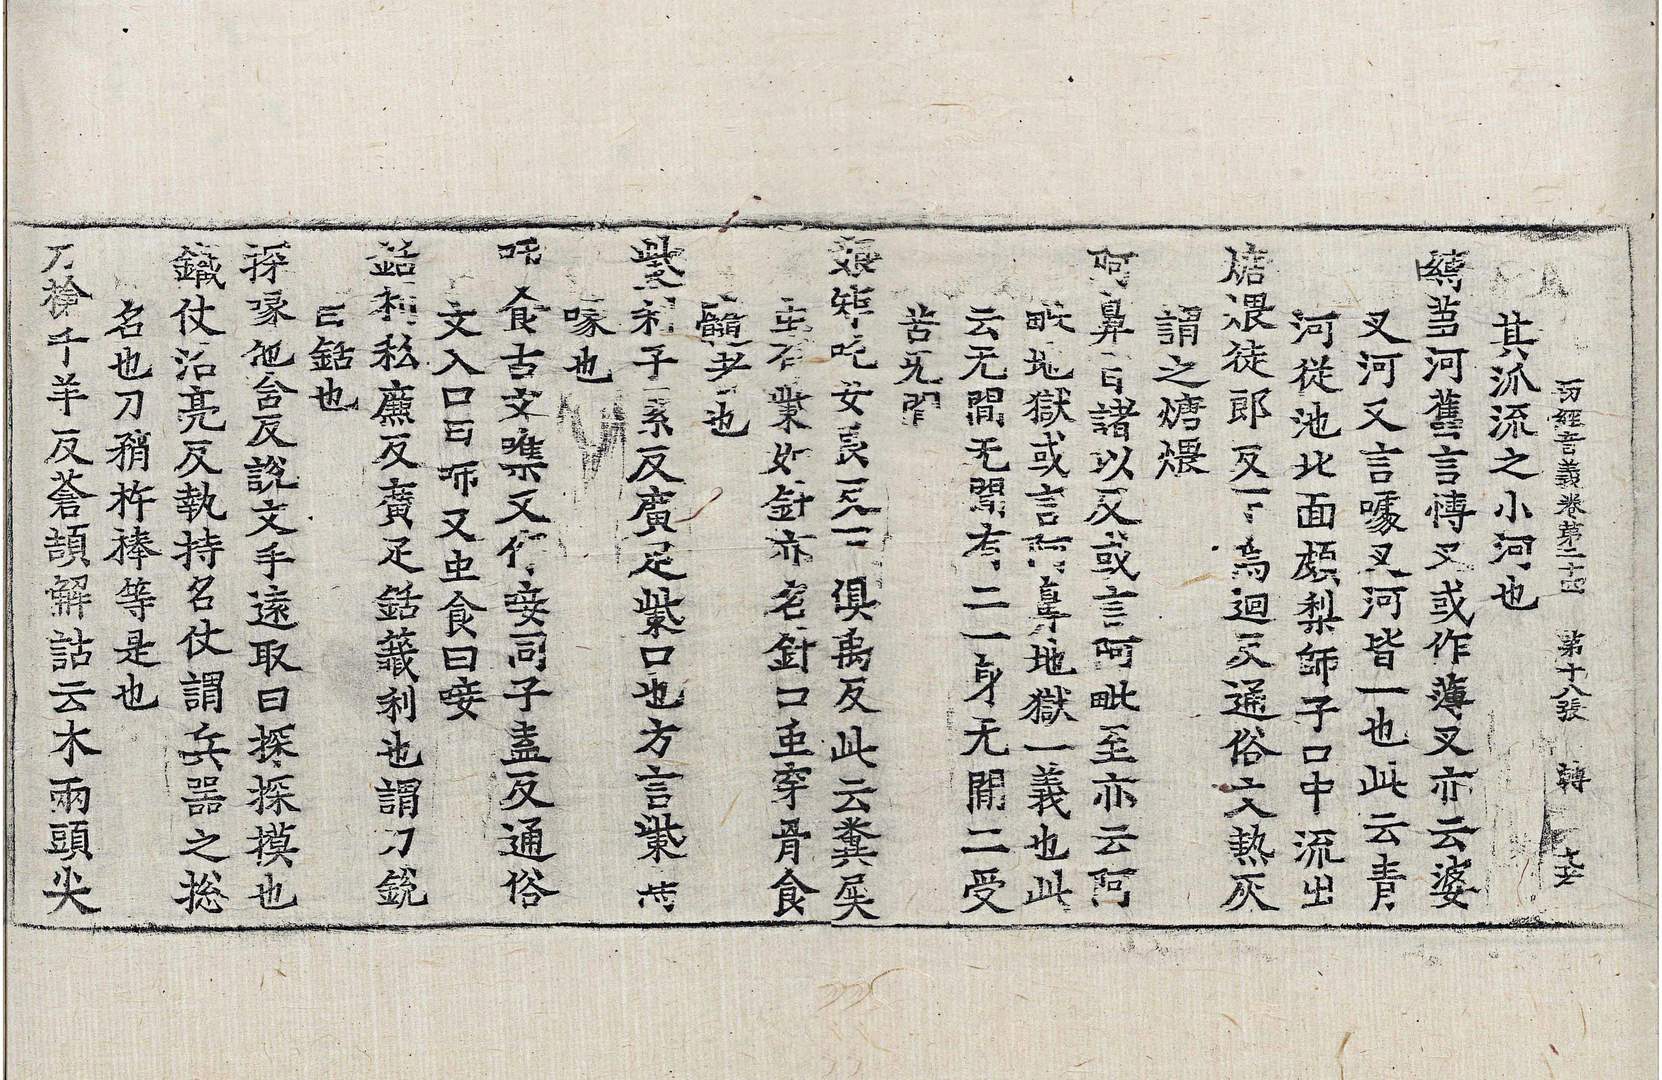 切經音義卷第二十四 第十八張 轉
其𣲖流之小河也
縛芻河舊言博叉或作薄叉亦云婆
叉河又言㗲叉河皆一也此云青
河從池北面頗梨師子口中流出
煻煨徒郎反下烏迴反通俗文熱灰
謂之煻煨
阿鼻言諸以反或言阿毗至亦云阿
毗地獄或言阿鼻地獄一義也此
云无間无間有二一身无間二受
苦无間
娘矩吒女良反下俱禹反此云糞屎
虫有㭰如針亦名針口虫穿骨食
髓者也
㭰利子累反廣疋㭰口也方言㭰
喙也
咂食古文噍又作唼同子盍反通俗
文入口曰咂又虫食曰唼
銛利私廉反廣疋銛籤利也謂刀銳
曰銛也
探啄他含反說文手遠取曰探探摸也
鐵仗治亮反執持名仗謂兵器之總
名也刀矟杵棒等是也
刀槍千羊反蒼頡解詁云木兩頭尖